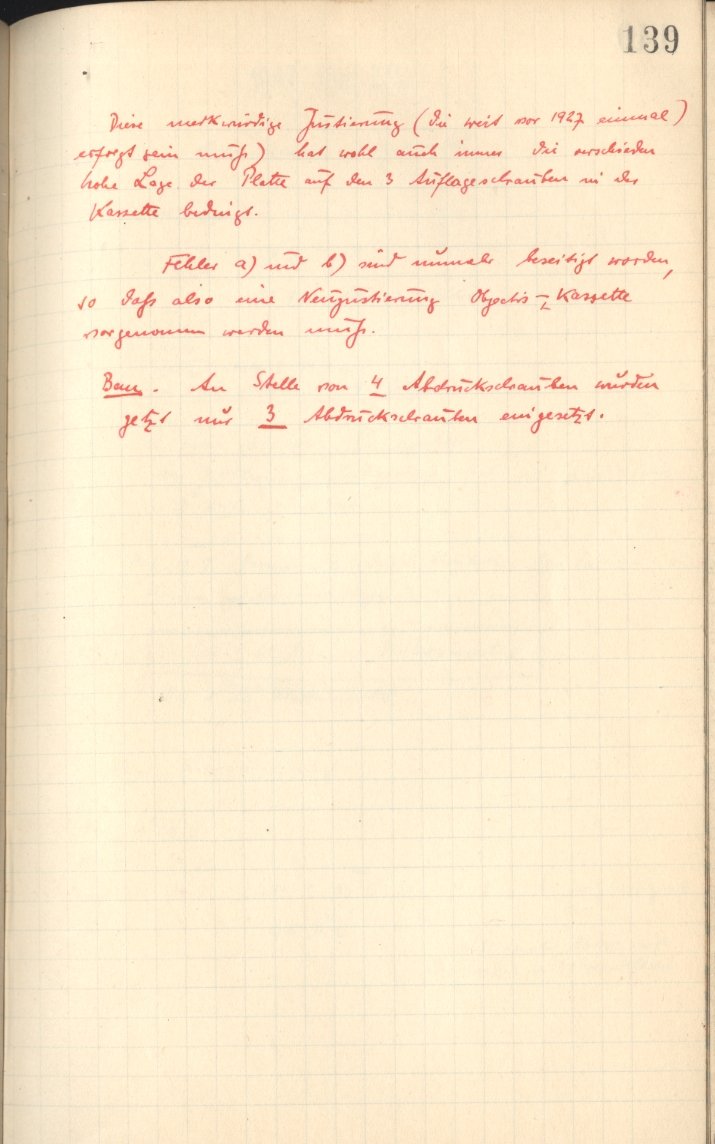 139
Diese merkwürdige Justierung (die weit vor 1927 einmal)
erfolgt sein muß) hat wohl auch immer die verschieden
hohe Lage der Platte auf den 3 Auflageschrauben in der
Kassette bedingt.
Fehler a) und b) sind nunmehr beseitigt worden,
so daß also eine Neujustierung Objectiv - Kassette
vorgenommen werden muß.
Bem. An Stelle von 4 Abdruckschrauben wurden
jetzt nur 3 Abdruckschrauben eingesetzt.